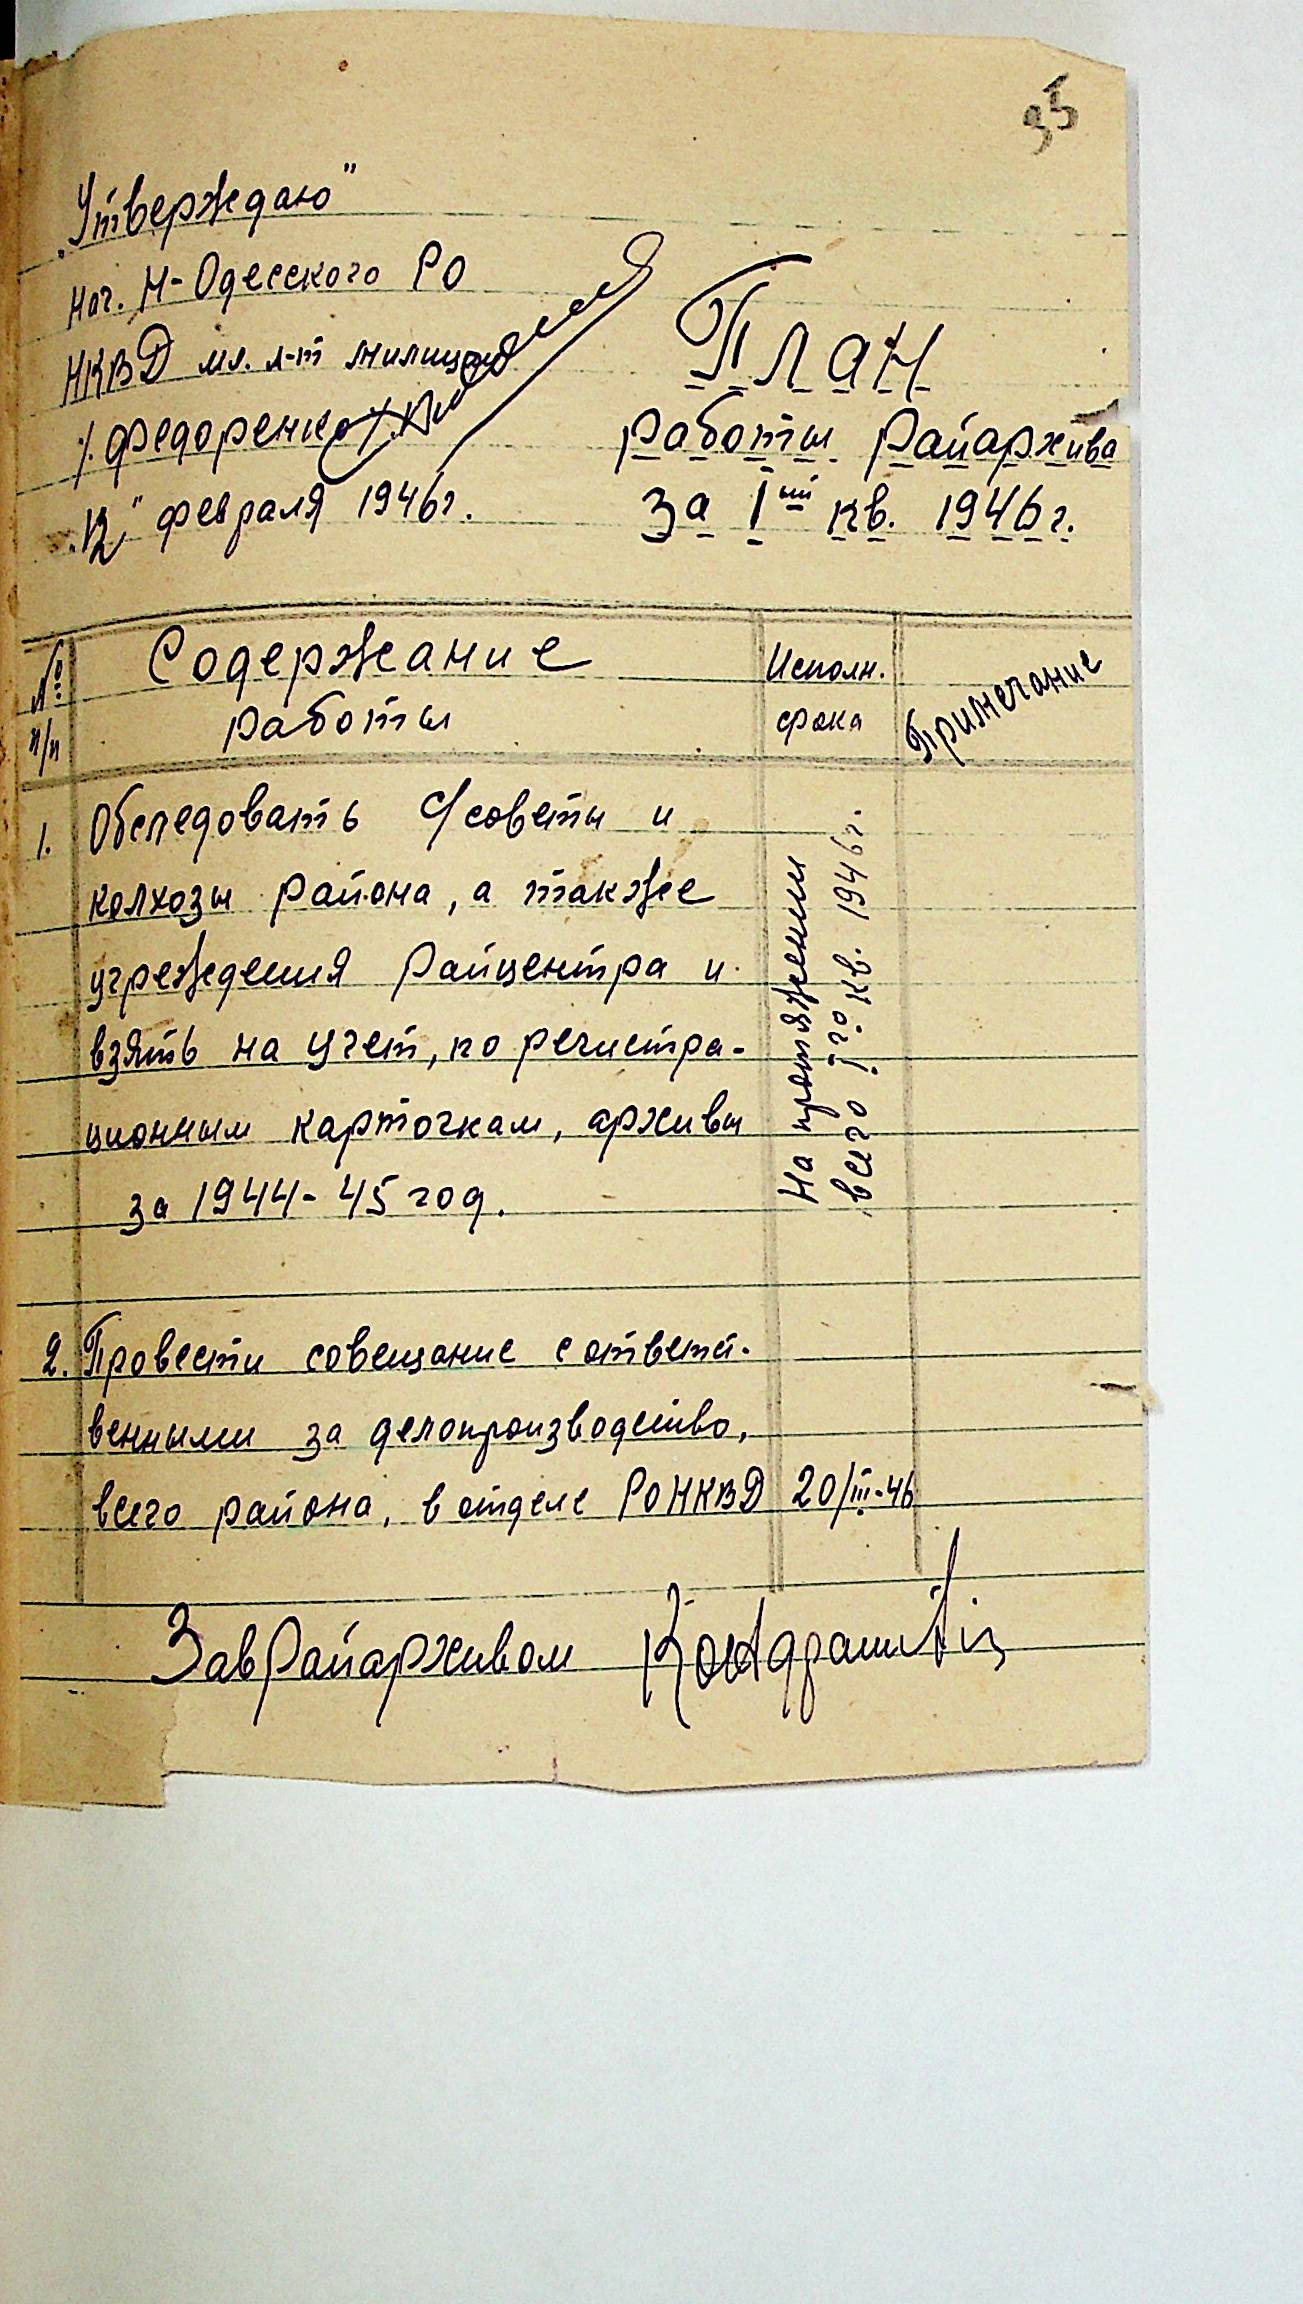 35
„Утверждаю"
Нач. Н-Одесского РО
НКВД мл. л-т милиции
/Федоренко/
„12" февраля 1946г.
План
работы Райархива
за Iый кв. 1946г.
№ п/п
Содержание
работы
Исполн.
срока
Примечание
1. Обследовать с/советы и
колхозы района, а также
учреждения Райцентра и
взять на учет, по регистра-
ционным карточкам, архивы
за 1944-45 год.
На протяжении
всего Iго кв. 1946г.
2. Провести совещание с ответст-
венными за делопроизводство,
всего района, в отделе РОНКВД 20/III-46
ЗавРайархивом